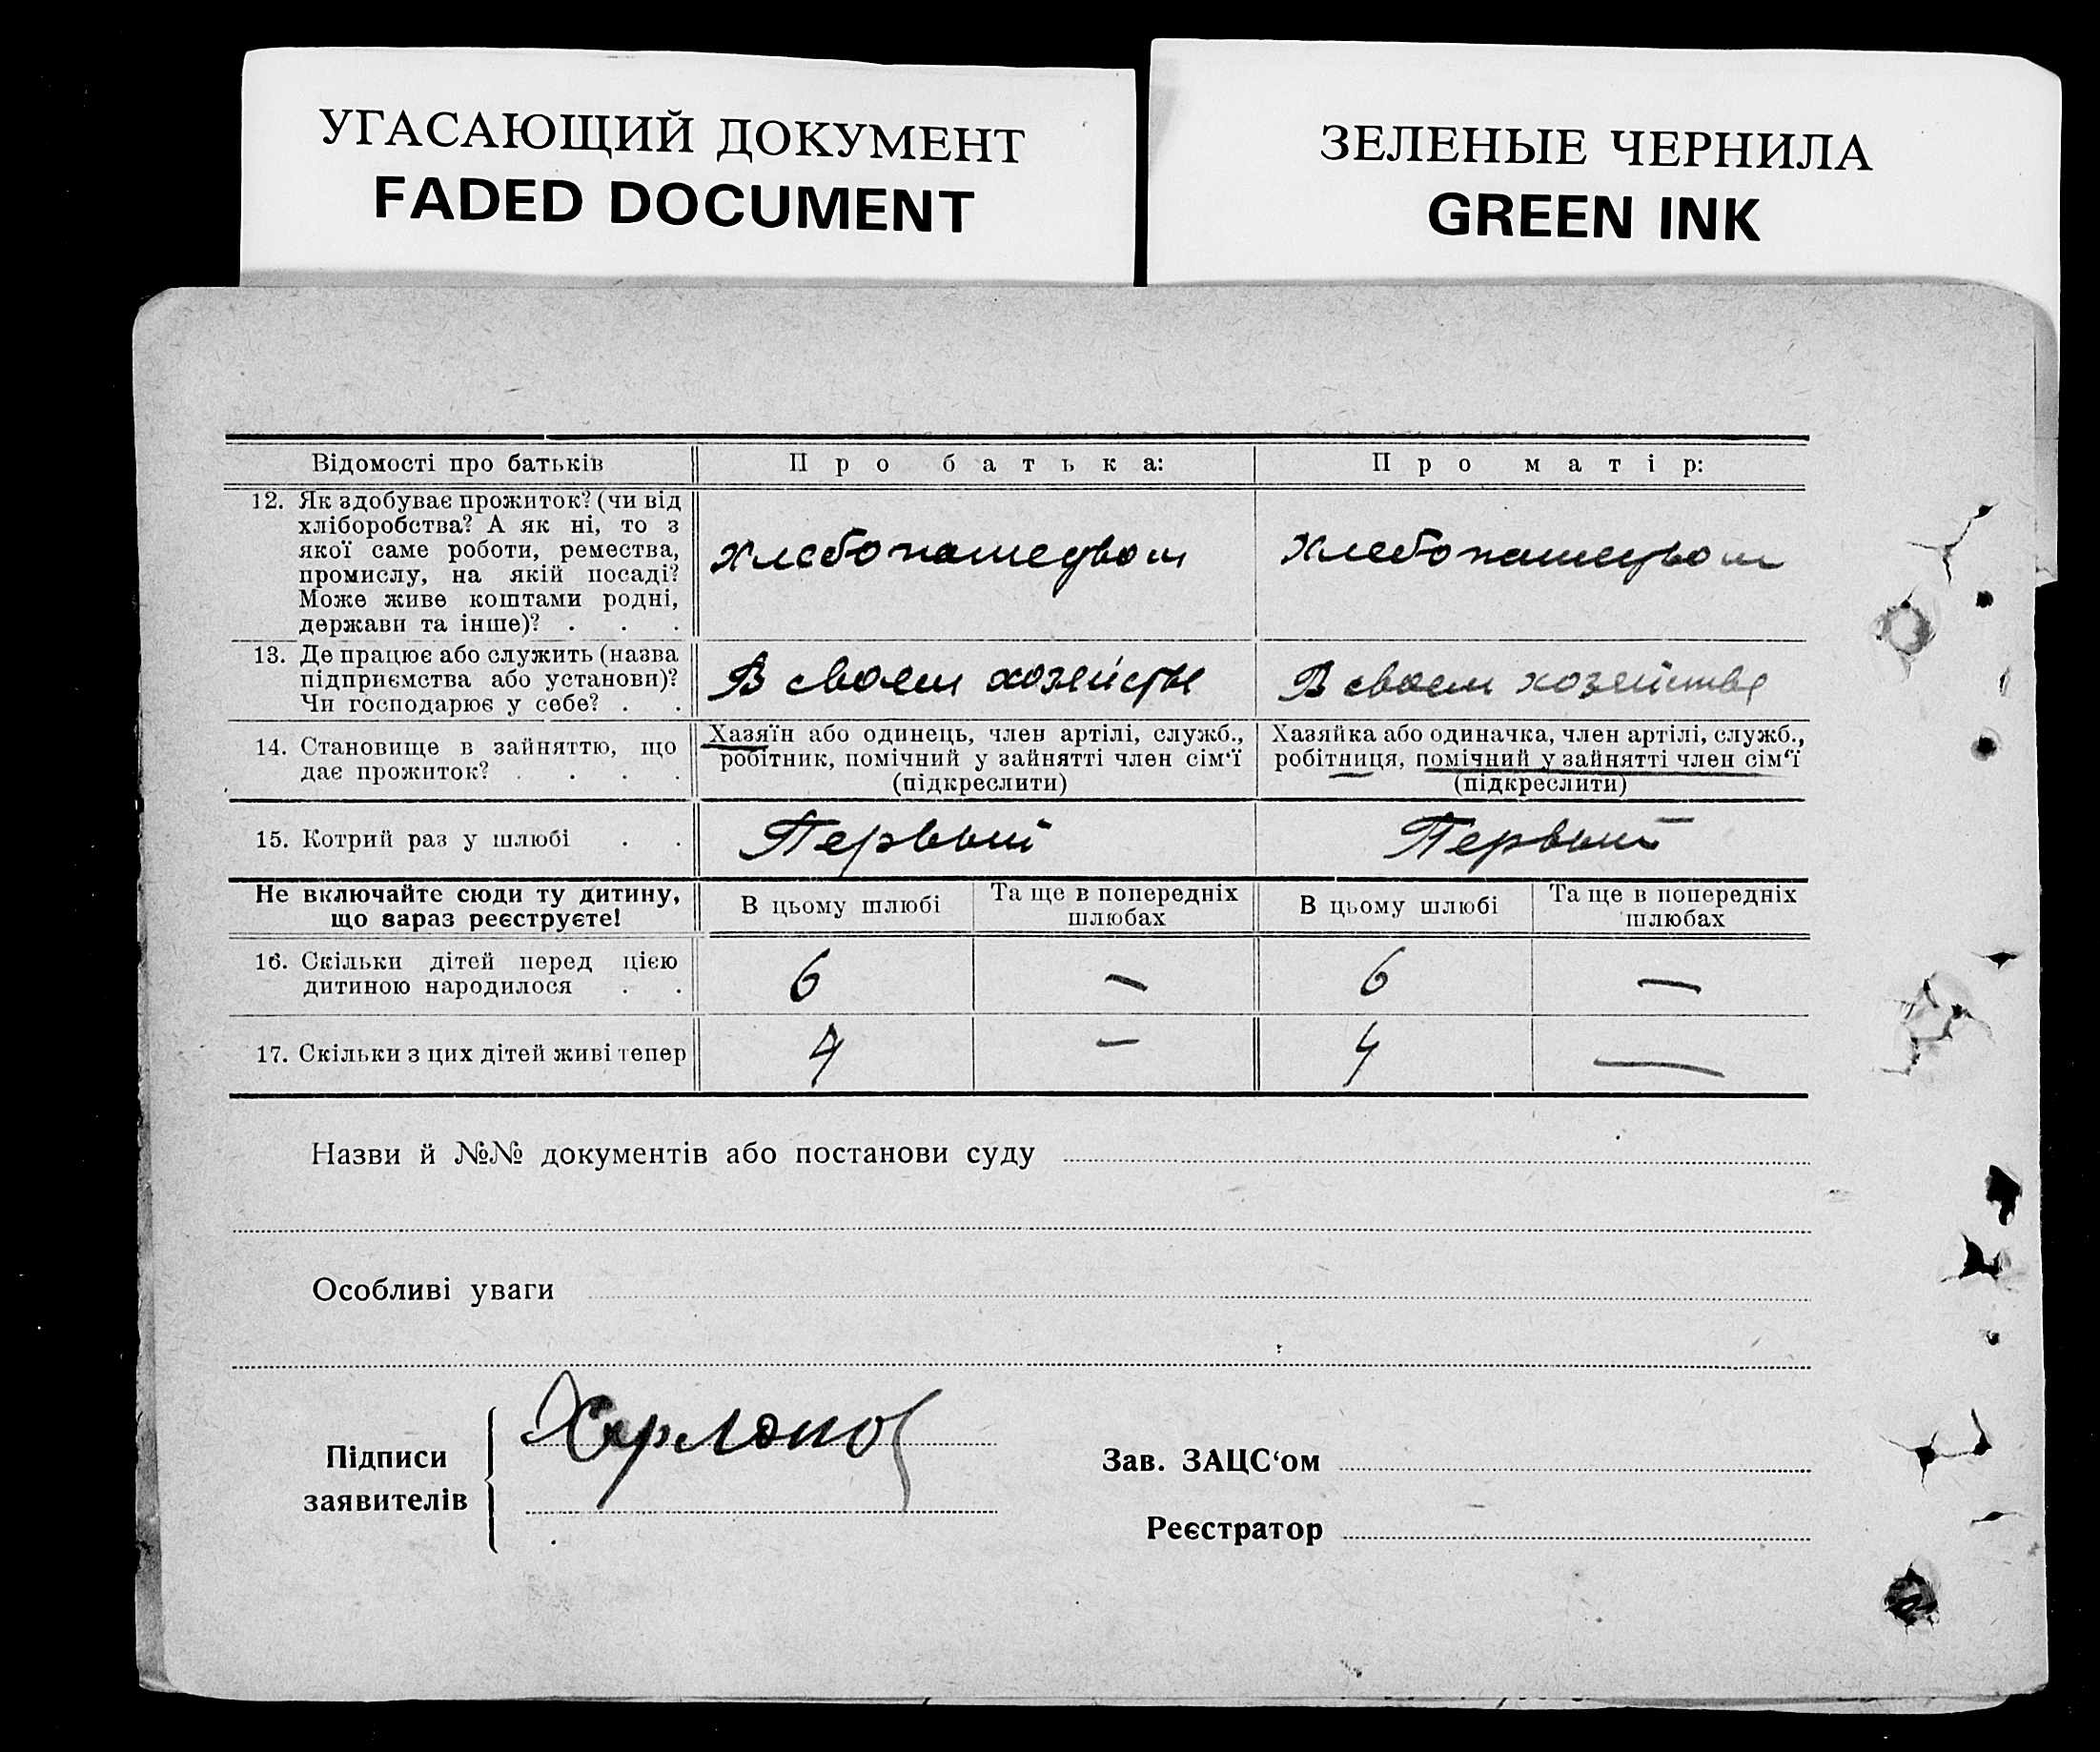 УГАСАЮЩИЙ ДОКУМЕНТ
FADED DOCUMENT
ЗЕЛЕНЫЕ ЧЕРНИЛА
GREEN INK
Відомості про батьків
Про батька:
Про матір:
12. Як здобуває прожиток? (чи від
хліборобства? А як ні, то з
якої саме роботи, ремества,
промислу, на якій посаді?
Може живе коштами родні,
держави та інше)? . . .
Хлебопашеством
Хлебопашеством
13. Де працює або служить (назва
підприємства або установи)?
Чи господарює у себе? . .
В своем хозяйстве
В своем хозяйстве
14. Становище в зайняттю, що
дає прожиток? . . . .
Хазяїн або одинець, член артілі, служб.,
робітник, помічний у зайнятті член сім‘ї
(підкреслити)
Хазяйка або одиначка, член артілі, служб.,
робітниця, помічний у зайнятті член сім‘ї
(підкреслити)
15. Котрий раз у шлюбі . .
Первый
Первый
Не включайте сюди ту дитину,
що зараз реєструєте!
В цьому шлюбі
Та ще в попередніх
шлюбах
В цьому шлюбі
Та ще в попередніх
шлюбах
16. Скільки дітей перед цією
дитиною народилося . .
6
—
6
—
17. Скільки з цих дітей живі тепер
4
—
4
—
Назви й №№ документів або постанови суду
Особливі уваги
Підписи
заявителів
Зав. ЗАЦС‘ом
Реєстратор